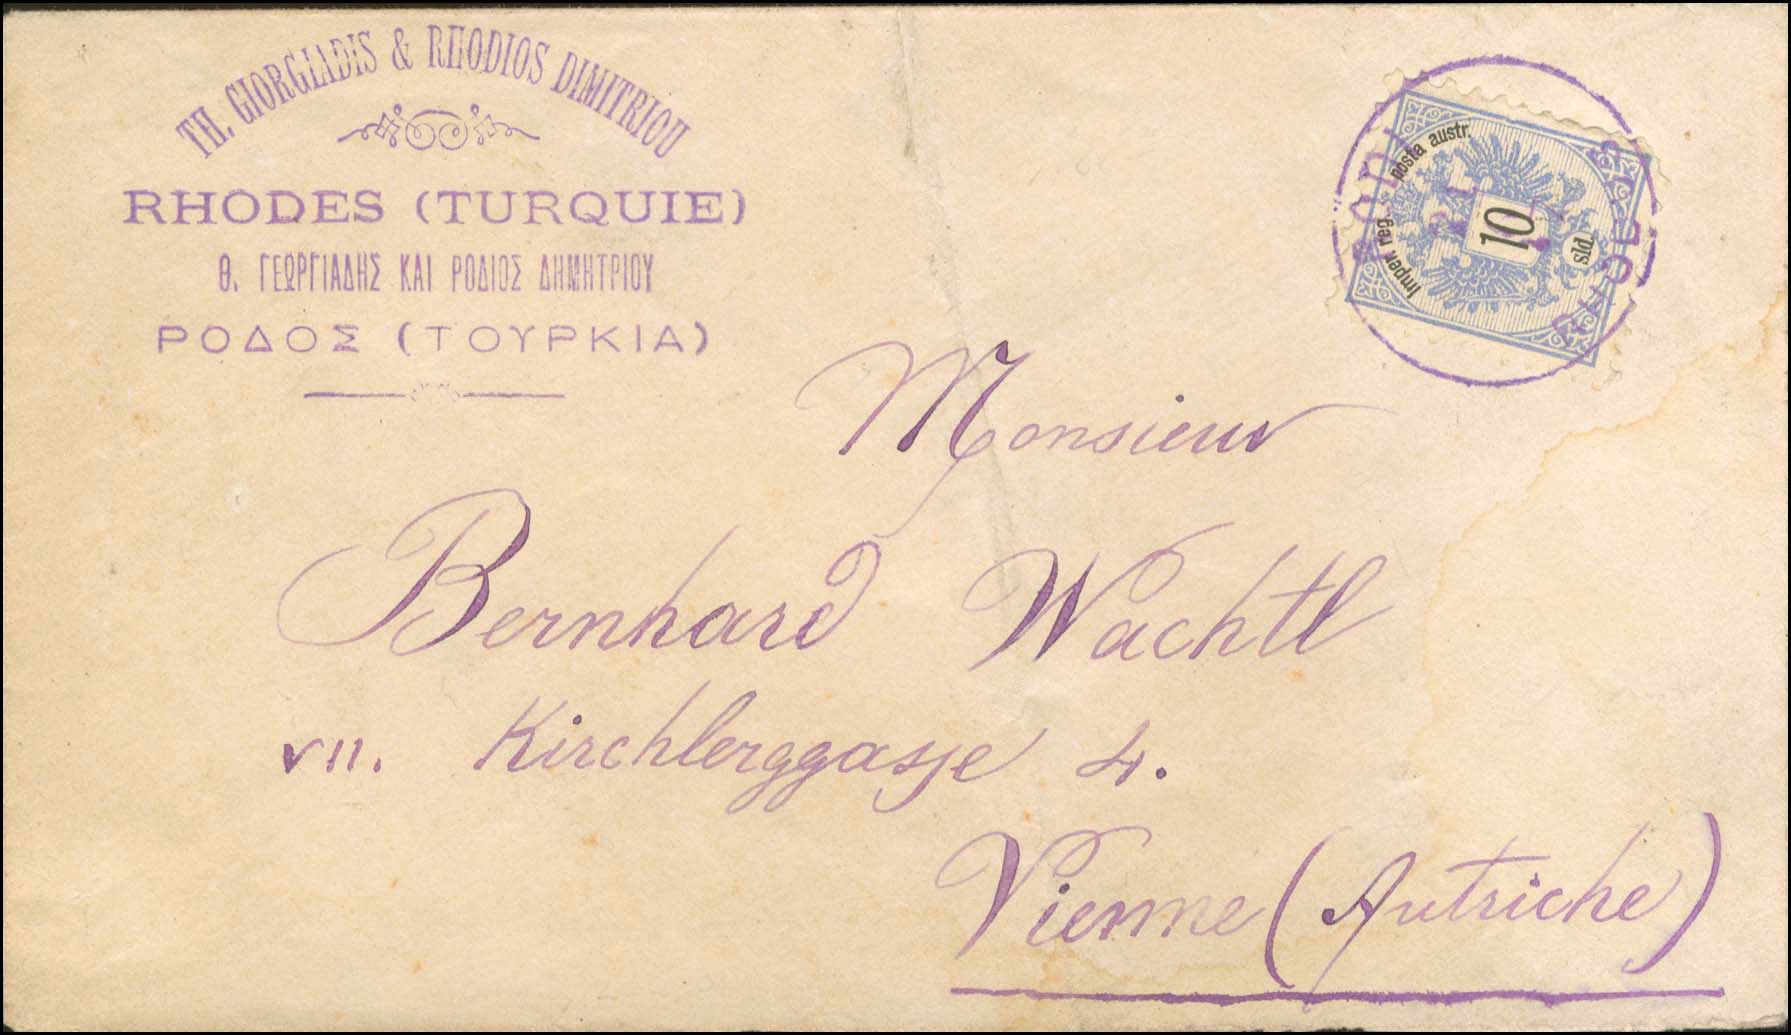 TH. GIORGIADIS & RHODIOS DIMITRIOU
RHODES (TURQUIE)
Θ. ΓΕΩΡΓΙΑΔΗΣ ΚΑΙ ΡΟΔΙΟΣ ΔΗΜΗΤΡΙΟΥ
ΡΟΔΟΣ (ΤΟΥΡΚΙΑ)
Imper. reg. posta austr.
10
sld.
RODI
Monsieur
Bernhard Wachtl
VII. Kirchberggasse 4.
Vienne (Autriche)